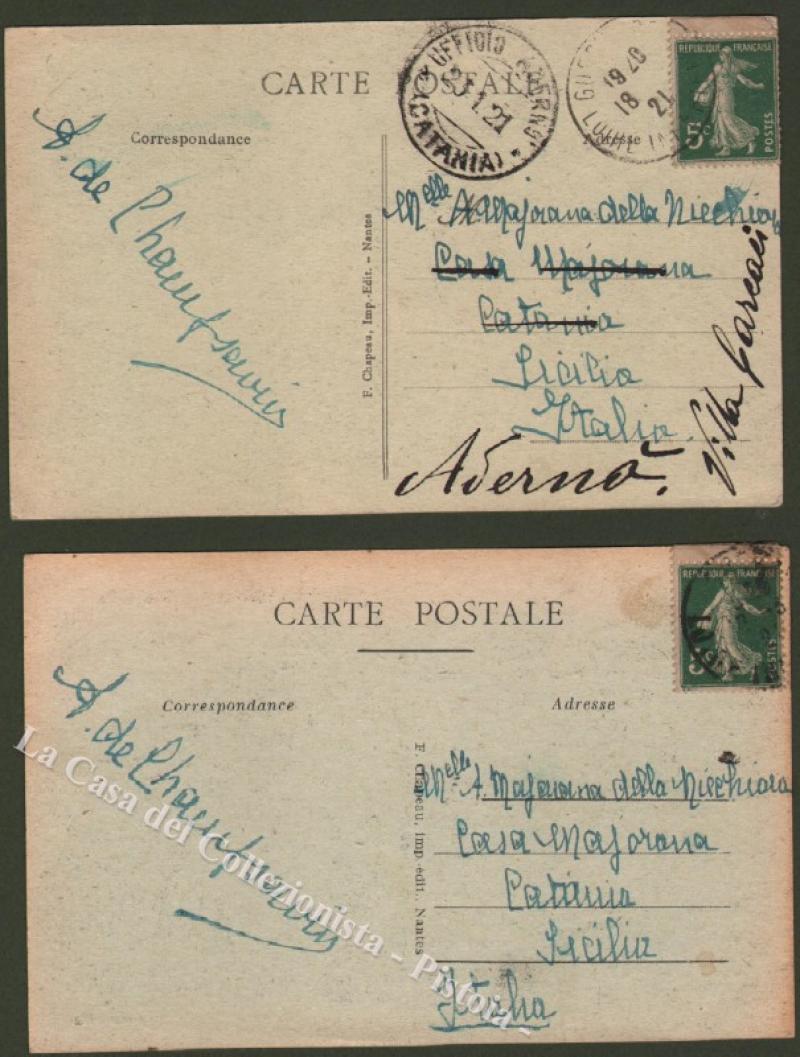 CARTE POSTALE
UFFICIO
(CATANIA)
1.21
GU
19 20
18
21
REPUBLIQUE FRANÇAISE
5c
POSTES
Correspondance
Adresse
A. de Champsavin
F. Chapeau, Imp.-Edit. - Nantes
Melle A Majorana della Nicchiara
Casa Majorana
Catania
Sicilia
Italia.
Adernò.
Villa Carcaci
CARTE POSTALE
REPUBLIQUE FRANÇAISE
POSTES
Correspondance
Adresse
A. de Champsavin
F. Chapeau, imp.-édit., Nantes
Melle A. Majorana della Nicchiara
Casa Majorana
Catania
Sicilia
Italia
La Casa del Collezionista - Pistoia -